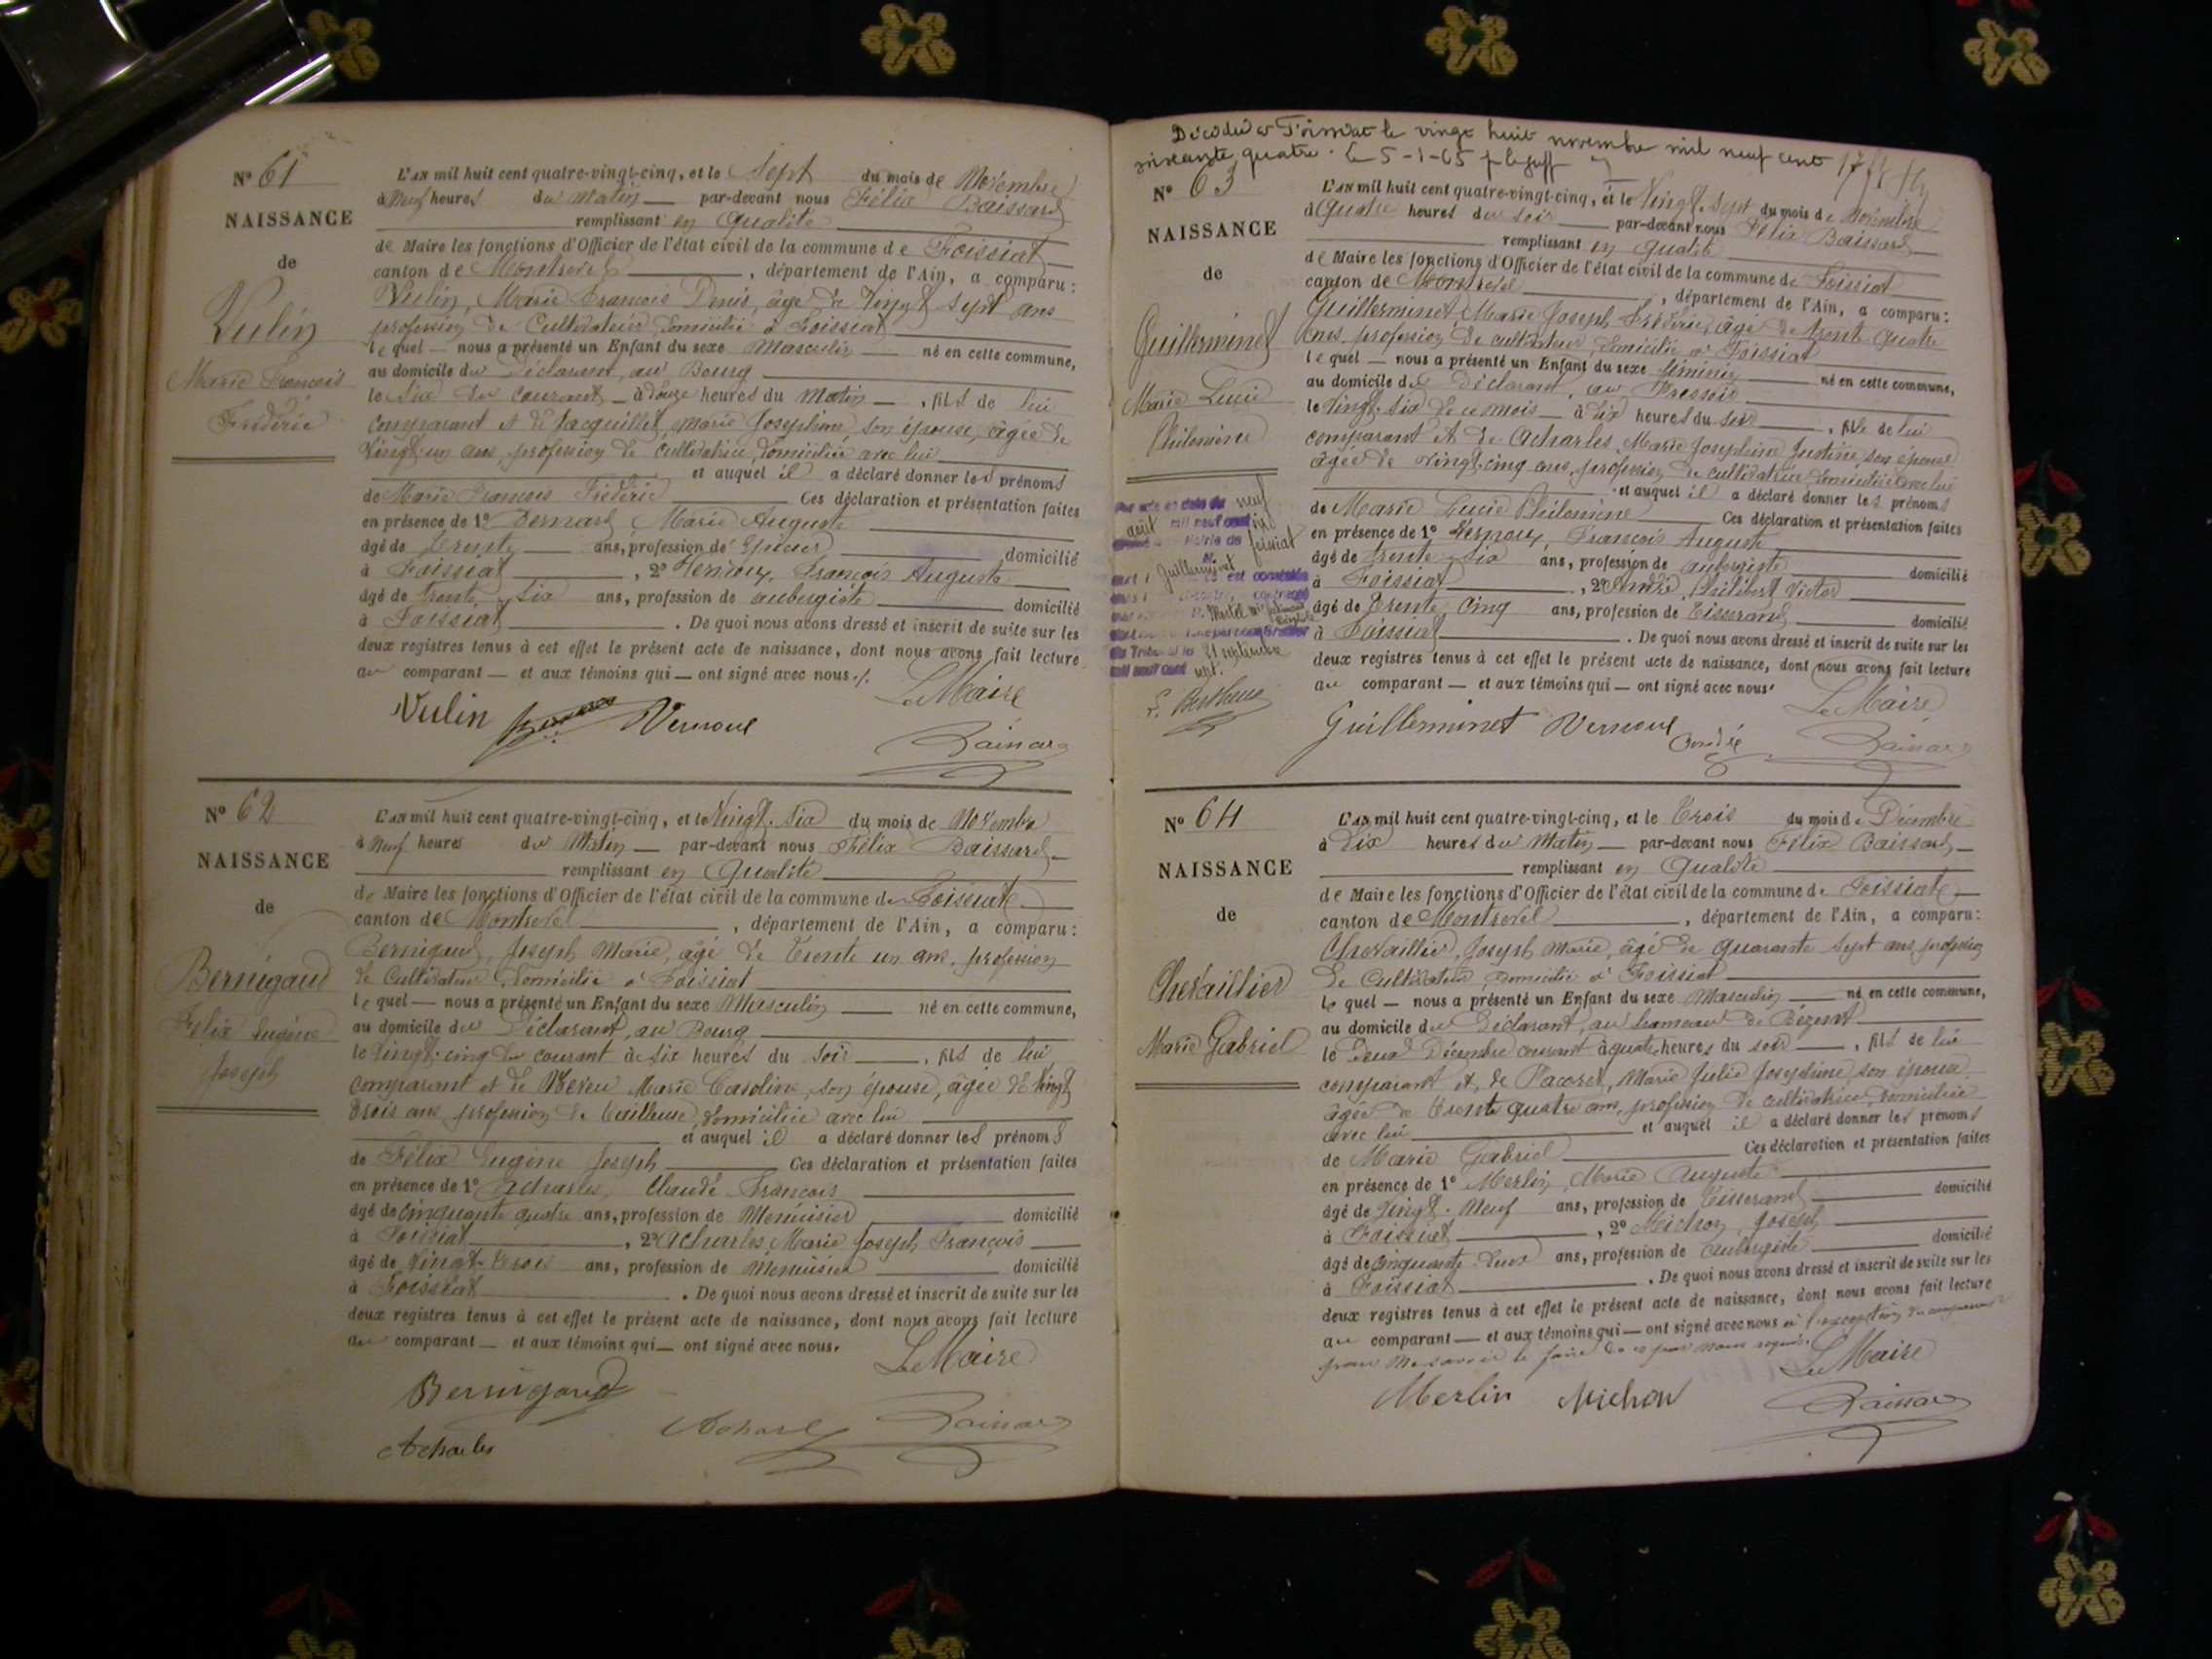 N° 61
NAISSANCE
de
Vulin
Marie François
Frédéric
L'AN mil huit cent quatre-vingt-cinq, et le Sept du mois de Novembre
à Neuf heures du Matin par-devant nous Félix Baissard
remplissant en qualité
de Maire les fonctions d'Officier de l'état civil de la commune de Foissiat
canton de Montrevel, département de l'Ain, a comparu :
Vulin, Marie François Denis, âgé de vingt sept ans
profession de Cultivateur domicilié à Foissiat
lequel nous a présenté un Enfant du sexe Masculin né en cette commune,
au domicile du Déclarant, au Bourg
le Six du courant à douze heures du Matin, fils de lui
comparant et de Jacquillet Marie Josephine son épouse, âgée de
vingt-un ans, profession de cultivatrice, domiciliée avec lui
et auquel il a déclaré donner les prénoms
de Marie François Frédéric Ces déclaration et présentation faites
en présence de 1° Bernard Marie Auguste
âgé de Trente ans, profession de Epicier domicilié
à Foissiat, 2° Vernoux, François Auguste
âgé de trente six ans, profession de aubergiste domicilié
à Foissiat. De quoi nous avons dressé et inscrit de suite sur les
deux registres tenus à cet effet le présent acte de naissance, dont nous avons fait lecture
au comparant et aux témoins qui ont signé avec nous.
Le Maire
Vulin Vernoux
Baissard
N° 62
NAISSANCE
de
Bernigaud
Félix Eugène
Joseph
L'AN mil huit cent quatre-vingt-cinq, et le Vingt-Six du mois de Novembre
à Neuf heures du Matin par-devant nous Félix Baissard
remplissant en Qualité
de Maire les fonctions d'Officier de l'état civil de la commune de Foissiat
canton de Montrevel, département de l'Ain, a comparu :
Bernigaud, Joseph Marie, âgé de Trente un ans, profession
de Cultivateur domicilié à Foissiat
lequel nous a présenté un Enfant du sexe Masculin né en cette commune,
au domicile du Déclarant, au Bourg
le Vingt-cinq du courant à six heures du soir, fils de lui
comparant et de Marie Caroline, son épouse, âgée de Vingt
trois ans, profession de tailleuse, domiciliée avec lui
et auquel il a déclaré donner les prénoms
de Félix Eugène Joseph Ces déclaration et présentation faites
en présence de 1° Acharles, Claude François
âgé de Cinquante quatre ans, profession de Menuisier domicilié
à Foissiat, 2° Acharles, Marie Joseph François
âgé de Vingt-trois ans, profession de Menuisier domicilié
à Foissiat. De quoi nous avons dressé et inscrit de suite sur les
deux registres tenus à cet effet le présent acte de naissance, dont nous avons fait lecture
au comparant et aux témoins qui ont signé avec nous.
Le Maire
Bernigaud
Acharles Baissard
Acharles
Décédée à Foissiat le vingt huit novembre mil neuf cent
soixante quatre. Le 5-1-65
N° 63
NAISSANCE
de
Guillerminet
Marie Lucie
Philomène
neuf
août mil neuf cent
Mairie de Foissiat
Guillerminet
21 septembre
mil neuf cent sept.
L'AN mil huit cent quatre-vingt-cinq, et le Vingt-Sept du mois de Novembre
à Quatre heures du soir par-devant nous Félix Baissard
remplissant en qualité
de Maire les fonctions d'Officier de l'état civil de la commune de Foissiat
canton de Montrevel, département de l'Ain, a comparu :
Guillerminet Marie Joseph Frédéric, âgé de trente quatre
ans, profession de cultivateur, domicilié à Foissiat
lequel nous a présenté un Enfant du sexe féminin né en cette commune,
au domicile du Déclarant, au Pressoir
le Vingt-six de ce mois à dix heures du soir, fille de lui
comparant et de Acharles, Marie Josephine Justine, son épouse
âgée de vingt-cinq ans, profession de cultivatrice, domiciliée avec lui
et auquel il a déclaré donner les prénoms
de Marie Lucie Philomène Ces déclaration et présentation faites
en présence de 1° Vernoux, François Auguste
âgé de trente-six ans, profession de aubergiste domicilié
à Foissiat, 2° Philibert Victor
âgé de Trente Cinq ans, profession de Tisserand domicilié
à Foissiat. De quoi nous avons dressé et inscrit de suite sur les
deux registres tenus à cet effet le présent acte de naissance, dont nous avons fait lecture
au comparant et aux témoins qui ont signé avec nous.
Le Maire
Guillerminet Vernoux
Baissard
N° 64
NAISSANCE
de
Chevaillier
Marie Gabriel
L'AN mil huit cent quatre-vingt-cinq, et le Trois du mois de Décembre
à Dix heures du Matin par-devant nous Félix Baissard
remplissant en Qualité
de Maire les fonctions d'Officier de l'état civil de la commune de Foissiat
canton de Montrevel, département de l'Ain, a comparu :
Chevaillier, Joseph Marie, âgé de quarante sept ans, profession
de Cultivateur, domicilié à Foissiat
lequel nous a présenté un Enfant du sexe Masculin né en cette commune,
au domicile du Déclarant, au hameau de
le Deux Décembre courant à quatre heures du soir, fils de lui
comparant et de Pacoret, Marie Julie Josephine, son épouse,
âgée de trente quatre ans, profession de cultivatrice, domiciliée
avec lui et auquel il a déclaré donner les prénoms
de Marie Gabriel Ces déclaration et présentation faites
en présence de 1° Merlin, Marie Auguste
âgé de Vingt-Neuf ans, profession de Tisserand domicilié
à Foissiat, 2° Michon, Joseph
âgé de Cinquante deux ans, profession de Aubergiste domicilié
à Foissiat. De quoi nous avons dressé et inscrit de suite sur les
deux registres tenus à cet effet le présent acte de naissance, dont nous avons fait lecture
au comparant et aux témoins qui ont signé avec nous à l'exception du comparant
pour ne savoir le faire de ce par nous requis.
Le Maire
Merlin Michon Baissard